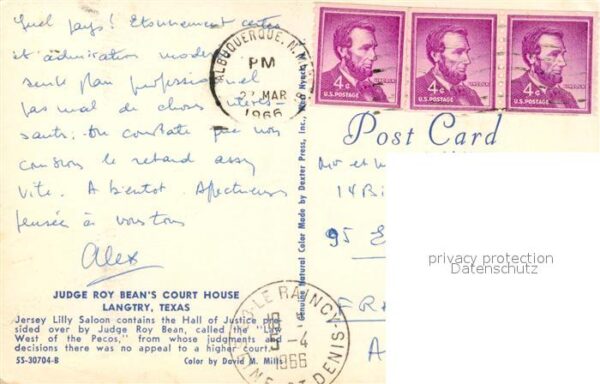 Quel pays! Etonnement certes
et admiration modérée
seule plan professionnel
pas mal de choses intéres-
santes. On constate que nous
le retard assez
vite. A bientot. Affectueuses
pensées à vous tous
Alex
JUDGE ROY BEAN'S COURT HOUSE
LANGTRY, TEXAS
Jersey Lilly Saloon contains the Hall of Justice pre-
sided over by Judge Roy Bean, called the "Law
West of the Pecos," from whose judgments and
decisions there was no appeal to a higher court.
55-30704-B Color by David M. Mills
ALBUQUERQUE, N. MEX.
PM
MAR
1966
4¢ LINCOLN
U.S. POSTAGE
4¢ LINCOLN
U.S. POSTAGE
4¢ LINCOLN
U.S. POSTAGE
Genuine Natural Color Made by Dexter Press, Inc., West Nyack, N.
Post Card
95
privacy protection
Datenschutz
LE RAINCY
-4
1966
SEINE ET DENIS